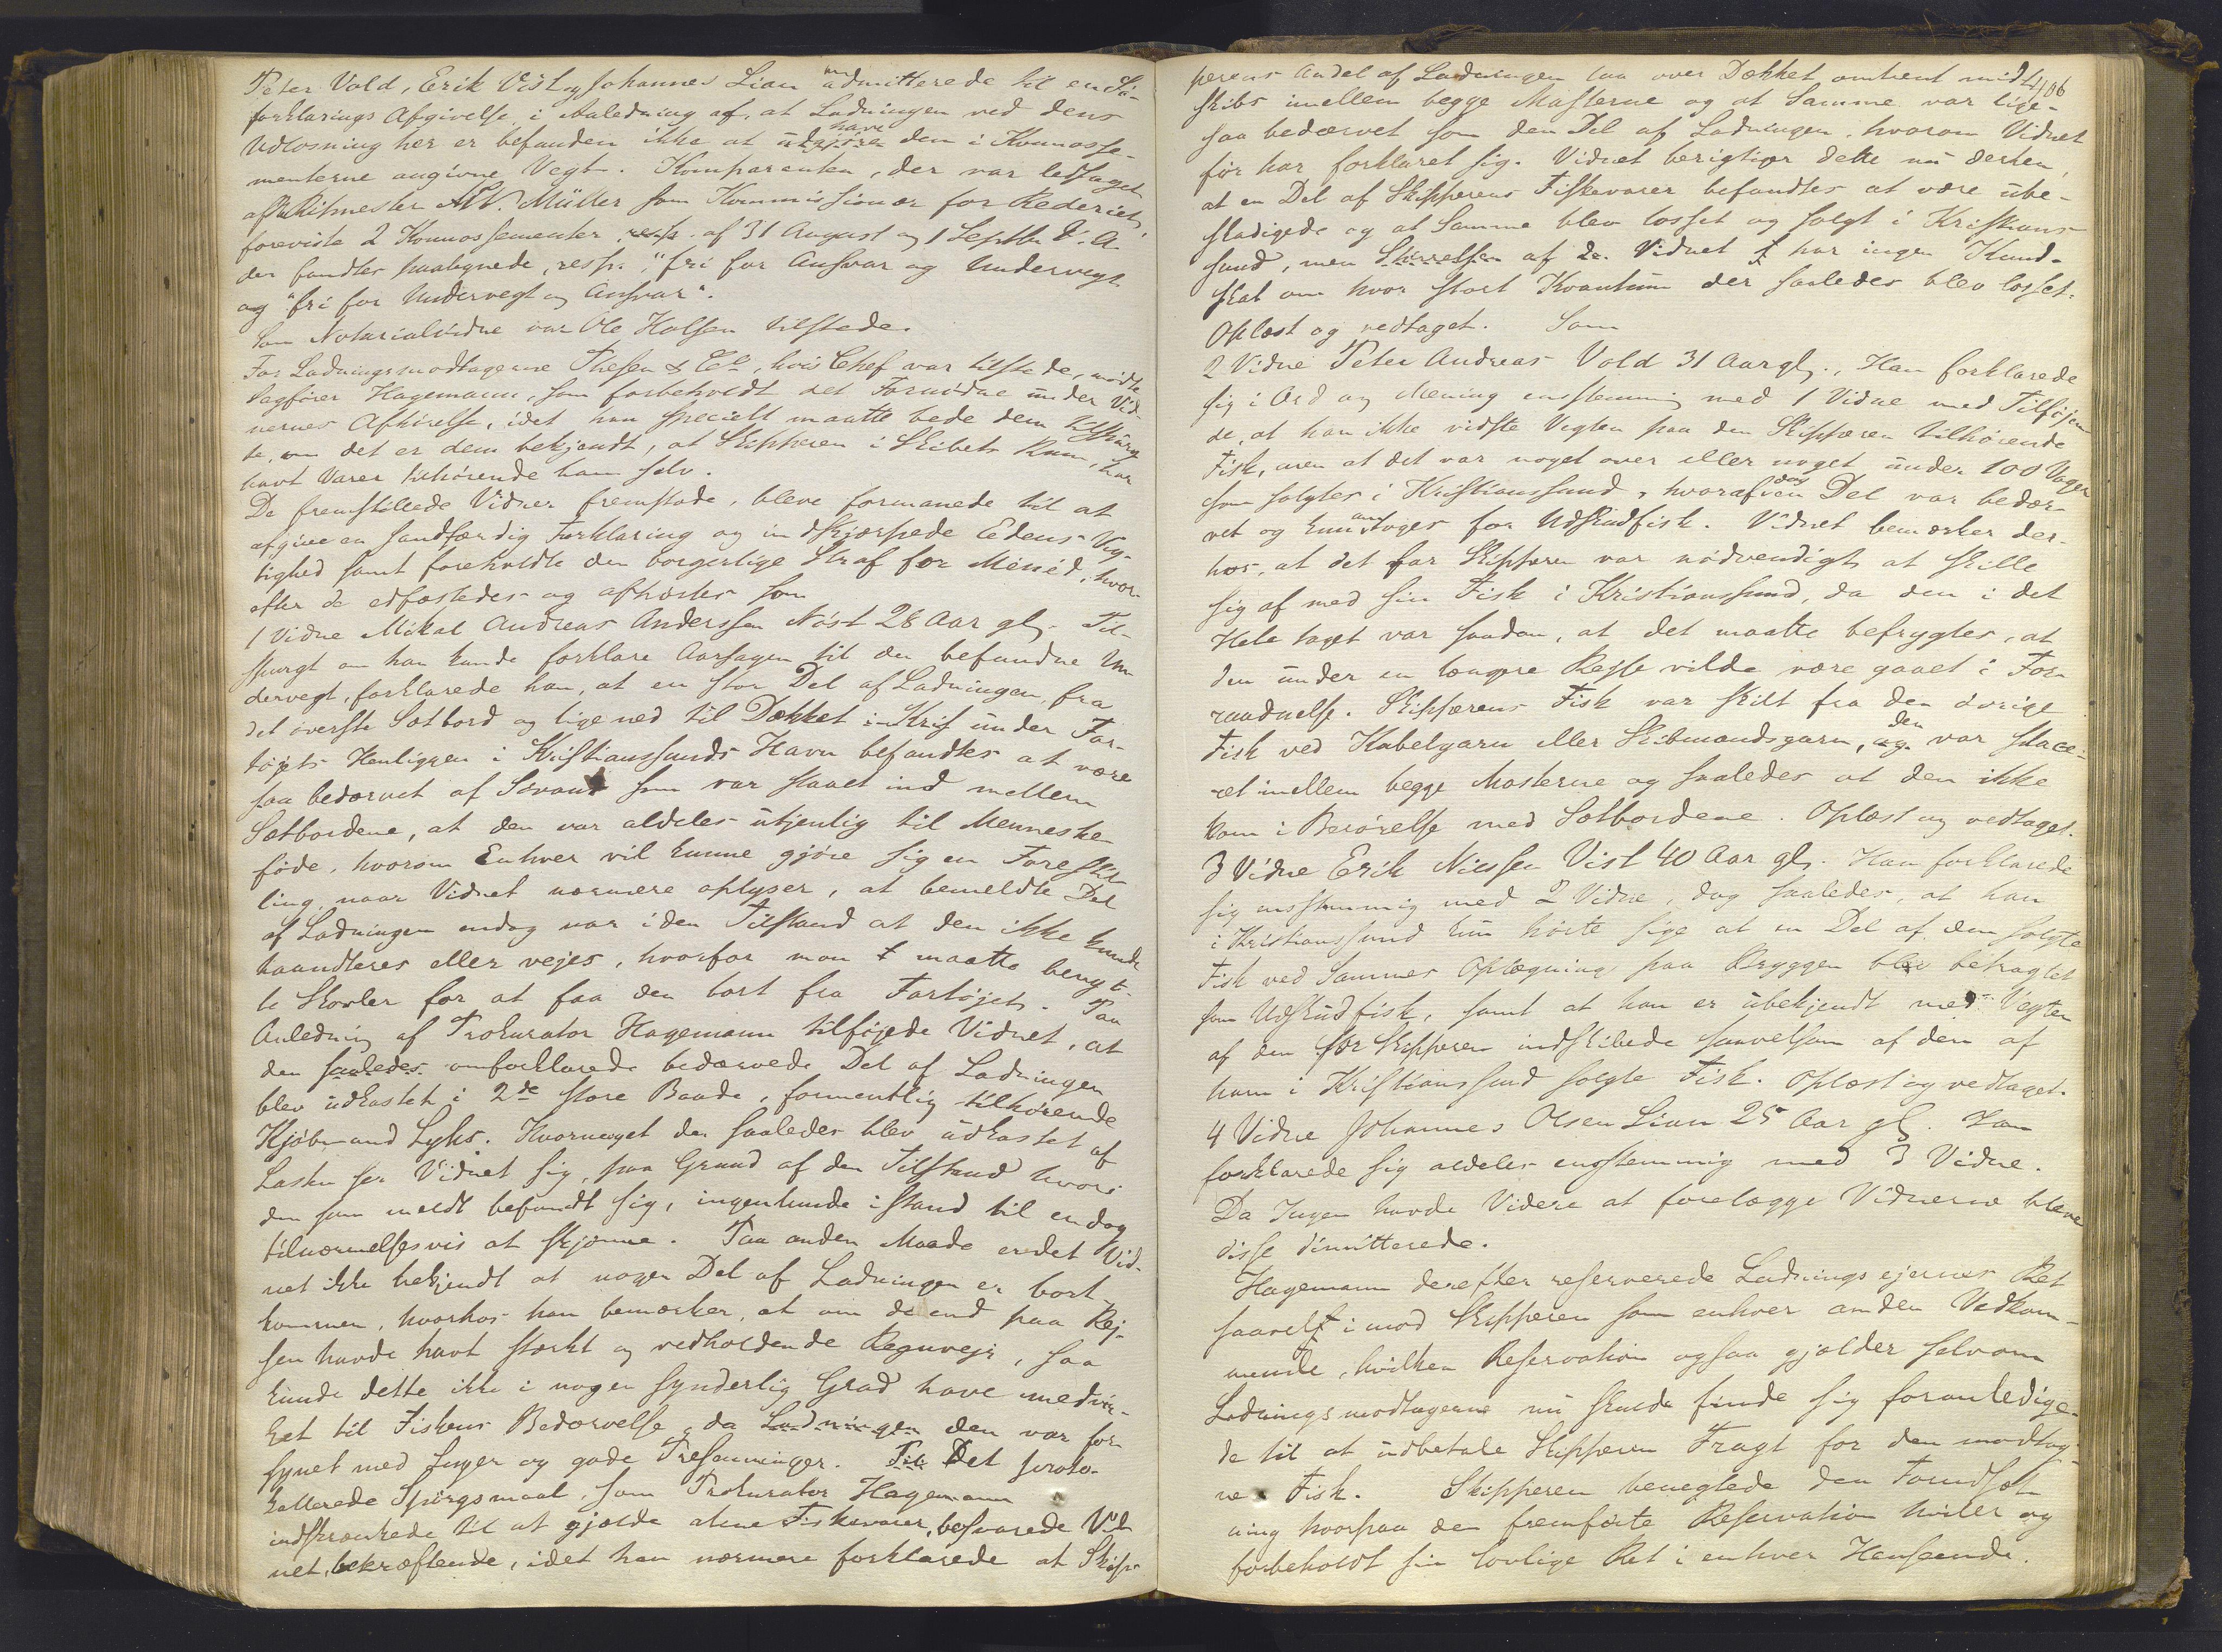 Peter Vold, Erik Vist og Johannes Lian admitterede til en Sø-
forklarings Afgivelse i Anledning af, at Ladningen ved dens
Udlosning her er befunden ikke at have udgjöre den i Konnosse-
menterne angivne Vegt. Komparenten, der var ledsaget
af Ritmester Müller som Kommissionær for Rederiet,
foreviste 2 Konnossementer resp. af 31 August og 1 Septbr d. A.
der fandtes paategnede, resp. "fri for Ansvar og Undervegt
og "fri for Undervegt og Ansvar".
Som Notarialvidne var Ole Halsen tilstede.
For Ladningsmodtagerne Thesen & Co, hvis Chef var tilstede, mødte
Sagfører Hagemann, som forbeholdt det Fornödne under Vid-
nernes Afhörelse, idet han specielt maatte bede dem tilspurg-
te, om det er dem bekjendt, at Skipperen i Skibets Rum, har
havt Varer tilhörende ham selv.
De fremstillede Vidner fremstode, bleve formanede til at
afgive en sandfærdig Forklaring og indskjærpede Edens Vig-
tighed samt foreholdte den borgerlige Straf for Mened, hvor-
efter de edfæstedes og afhørtes som
1 Vidne Mikal Andreas Anderssen Nöst 28 Aar gl. Til-
spurgt om han kunde forklare Aarsagen til den befundne Un
dervegt, forklarede han, at en stor Del af Ladningen, fra
det överste Satbord og lige ned til Dækket i Krif under Far-
töjets Henliggen i Kristianssunds Havn befandtes at være
saa bedærvet af Søvand som var slaaet ind mellem
Satbordene, at den var aldeles utjenlig til Menneske
föde, hvorom Enhver vil kunne gjöre sig en Forestil
ling, naar Vidnet nærmere oplyser, at bemeldte Del
af Ladningen endog var i den Tilstand at den ikke kunde
haandteres eller vejes, hvorfor man maatte benyt-
te Skovler for at faa den bort fra Fartöjet. Paa
Anledning af Prokurator Hagemann tilföjede Vidnet, at
den saaledes omforklarede bedærvede Del af Ladningen
blev udkastet i 2de store Baade, formentlig tilhörende
Kjöbmand Lyhs. Hvormeget der saaledes blev udkastet af
Lasten ser Vidnet sig, paa Grund af den Tilstand hvori
den som meldt befandt sig, ingenlunde istand til endog
tilnærmelsesvis at skjönne. Paa anden Maade er det Vid-
net ikke bekjendt at nogen Del af Ladningen er bort-
kommen, hvorhos han bemærker, at om de end paa Rej-
sen havde havt stærkt og vedholdende Regnvejr, saa
kunde dette ikke i nogen synderlig Grad have medvir-
ket til Fiskens Bedærvelse, da Ladningen den var for-
synet med Luger og gode Presenninger. Til Det proto-
kollerede Spörgsmaal, som Prokurator Hagemann
indskrænkede til at gjælde alene Fiskevarer, besvarede Vid
net bekræftende, idet han nærmere forklarede at Skip-
406
perens Andel af Ladningen laa over Dækket omtrent mid-
skibs imellem begge Masterne og at Samme var lige-
saa bedærvet som den Del af Ladningen, hvorom Vidnet
för har forklaret sig. Vidnet berigtiger dette nu derhen,
at en Del af Skipperens Fiskevarer befandtes at være übe-
skadigede og at Samme blev losset og solgt i Kristians-
sund, men Störrelsen af de. Vidnet har ingen Kund-
skab om hvor stort Kvantum der saaledes blev losset.
Oplæst og vedtaget. Som
2 Vidne Peter Andreas Vold 31 Aar gl., Han forklarede
sig i Ord og Mening enstemmig med 1 Vidne med Tilföjen
de, at han ikke vidste Vegten paa den Skipperen tilhörende
Fisk, men at det var noget over eller noget under 100 Voger
som solgtes i Kristianssund, hvoraf dog en Del var bedær-
vet og kun antoges for Udskudfisk. Vidnet bemærker der-
hos, at det for Skipperen var nödvendigt at skille
sig af med sin Fisk i Kristianssund, da den i det
Hele taget var saadan, at det maatte befrygtes, at
den under en længere Rejse vilde være gaaet i For-
raadnelse. Skipperens Fisk var skilt fra den övrige
Fisk ved Kabelgarn eller Skibmandsgarn, og den var place-
ret imellem begge Masterne og saaledes at den ikke
kom i Berörelse med Satbordene. Oplæst og vedtaget.
3 Vidne Erik Nilssen Vist 40 Aar gl. Han forklarede
sig enstemmig med 2 Vidne, dog saaledes, at han
i Kristianssund kun hörte sige at en Del af den solgte
Fisk ved Sammes Oplægning paa Bryggen blev betragtet
som Udskudfisk, samt at han er ubekjendt med Vegten
af den for Skipperen indskibede saavelsom af den af
ham i Kristianssund solgte Fisk. Oplæst og vedtaget.
4 Vidne Johannes Olsen Lian 25 Aar gl. Han
forklarede sig aldeles enstemmig med 3 Vidne.
Da Ingen havde Videre at forelægge Vidnerne bleve
disse dimitterede.
Hagemann derefter reserverede Ladningsejernes Ret
saavel imod Skipperen som enhver anden Vedkom-
mende, hvilken Reservation ogsaa gjælder selv om
Ladningsmodtagerne nu skulde finde sig foranledige-
de til at udbetale Skipperen Fragt for den modtag-
ne Fisk. Skipperen benegtede den Forudsæt
ning hvorpaa den fremförte Reservation hviler og
forbeholdt sin lovlige Ret i enhver Henseende.